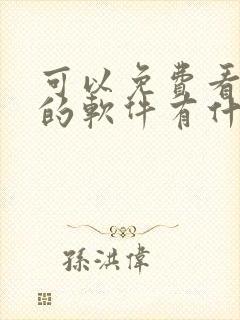 可以免費看
的軟件有什
孫洪偉